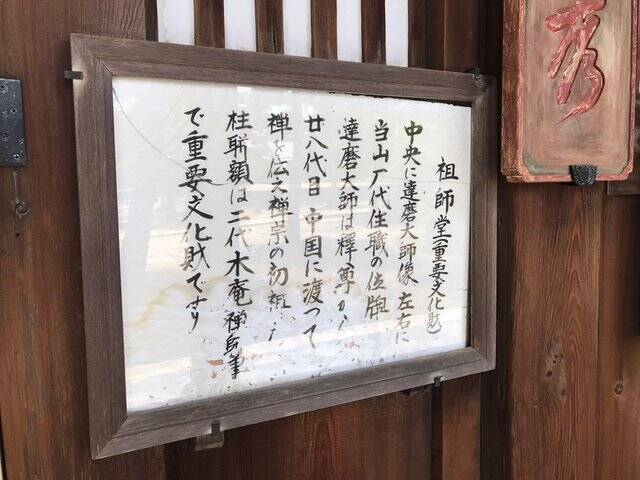 祖師堂(重要文化財)
中央に達磨大師像 左右に
当山歴代住職の位牌
達磨大師は釋尊から
廿八代目 中国に渡って
禅を伝え禅宗の初祖
柱聯額は二代木庵禅師筆
で重要文化財です